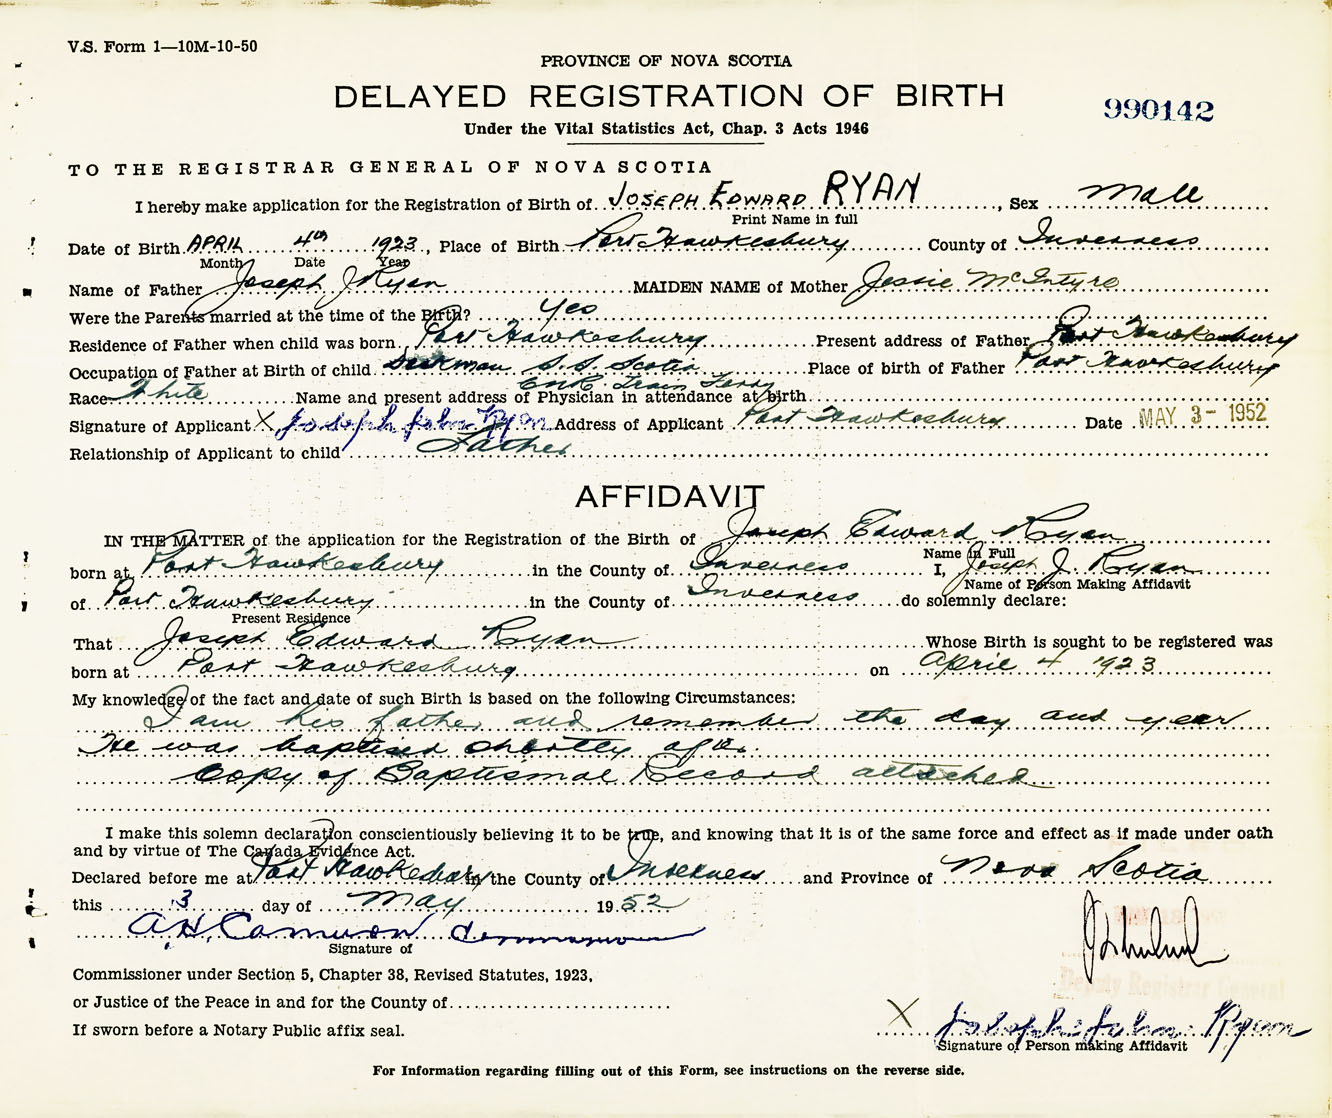 V.S. Form 1—10M-10-50
PROVINCE OF NOVA SCOTIA
DELAYED REGISTRATION OF BIRTH
990142
Under the Vital Statistics Act, Chap. 3 Acts 1946
TO THE REGISTRAR GENERAL OF NOVA SCOTIA
I hereby make application for the Registration of Birth of JOSEPH EDWARD RYAN, Sex Male
Print Name in full
Date of Birth APRIL 4th 1923, Place of Birth Port Hawkesbury County of Inverness
Month Date Year
Name of Father Joseph J Ryan MAIDEN NAME of Mother Jessie McIntyre
Were the Parents married at the time of the Birth? Yes
Residence of Father when child was born Port Hawkesbury Present address of Father Port Hawkesbury
Occupation of Father at Birth of child Deckman S.S. Scotia Place of birth of Father Port Hawkesbury
CNR Train Ferry
Race White Name and present address of Physician in attendance at birth
Signature of Applicant X Joseph John Ryan Address of Applicant Port Hawkesbury Date MAY 3- 1952
Relationship of Applicant to child Father
AFFIDAVIT
IN THE MATTER of the application for the Registration of the Birth of Joseph Edward Ryan
Name in Full
born at Port Hawkesbury in the County of Inverness I, Joseph J. Ryan
Name of Person Making Affidavit
of Port Hawkesbury in the County of Inverness do solemnly declare:
Present Residence
That Joseph Edward Ryan Whose Birth is sought to be registered was
born at Port Hawkesbury on April 4 1923
My knowledge of the fact and date of such Birth is based on the following Circumstances:
I am his father and remember the day and year
He was baptised shortly after.
Copy of Baptismal Record attached
I make this solemn declaration conscientiously believing it to be true, and knowing that it is of the same force and effect as if made under oath
and by virtue of The Canada Evidence Act.
Declared before me at Port Hawkesbury in the County of Inverness and Province of Nova Scotia
this 3 day of May 1952
A.H. Cameron
Signature of
Commissioner under Section 5, Chapter 38, Revised Statutes, 1923,
Deputy Registrar General
or Justice of the Peace in and for the County of
If sworn before a Notary Public affix seal.
X Joseph John Ryan
Signature of Person making Affidavit
For Information regarding filling out of this Form, see instructions on the reverse side.